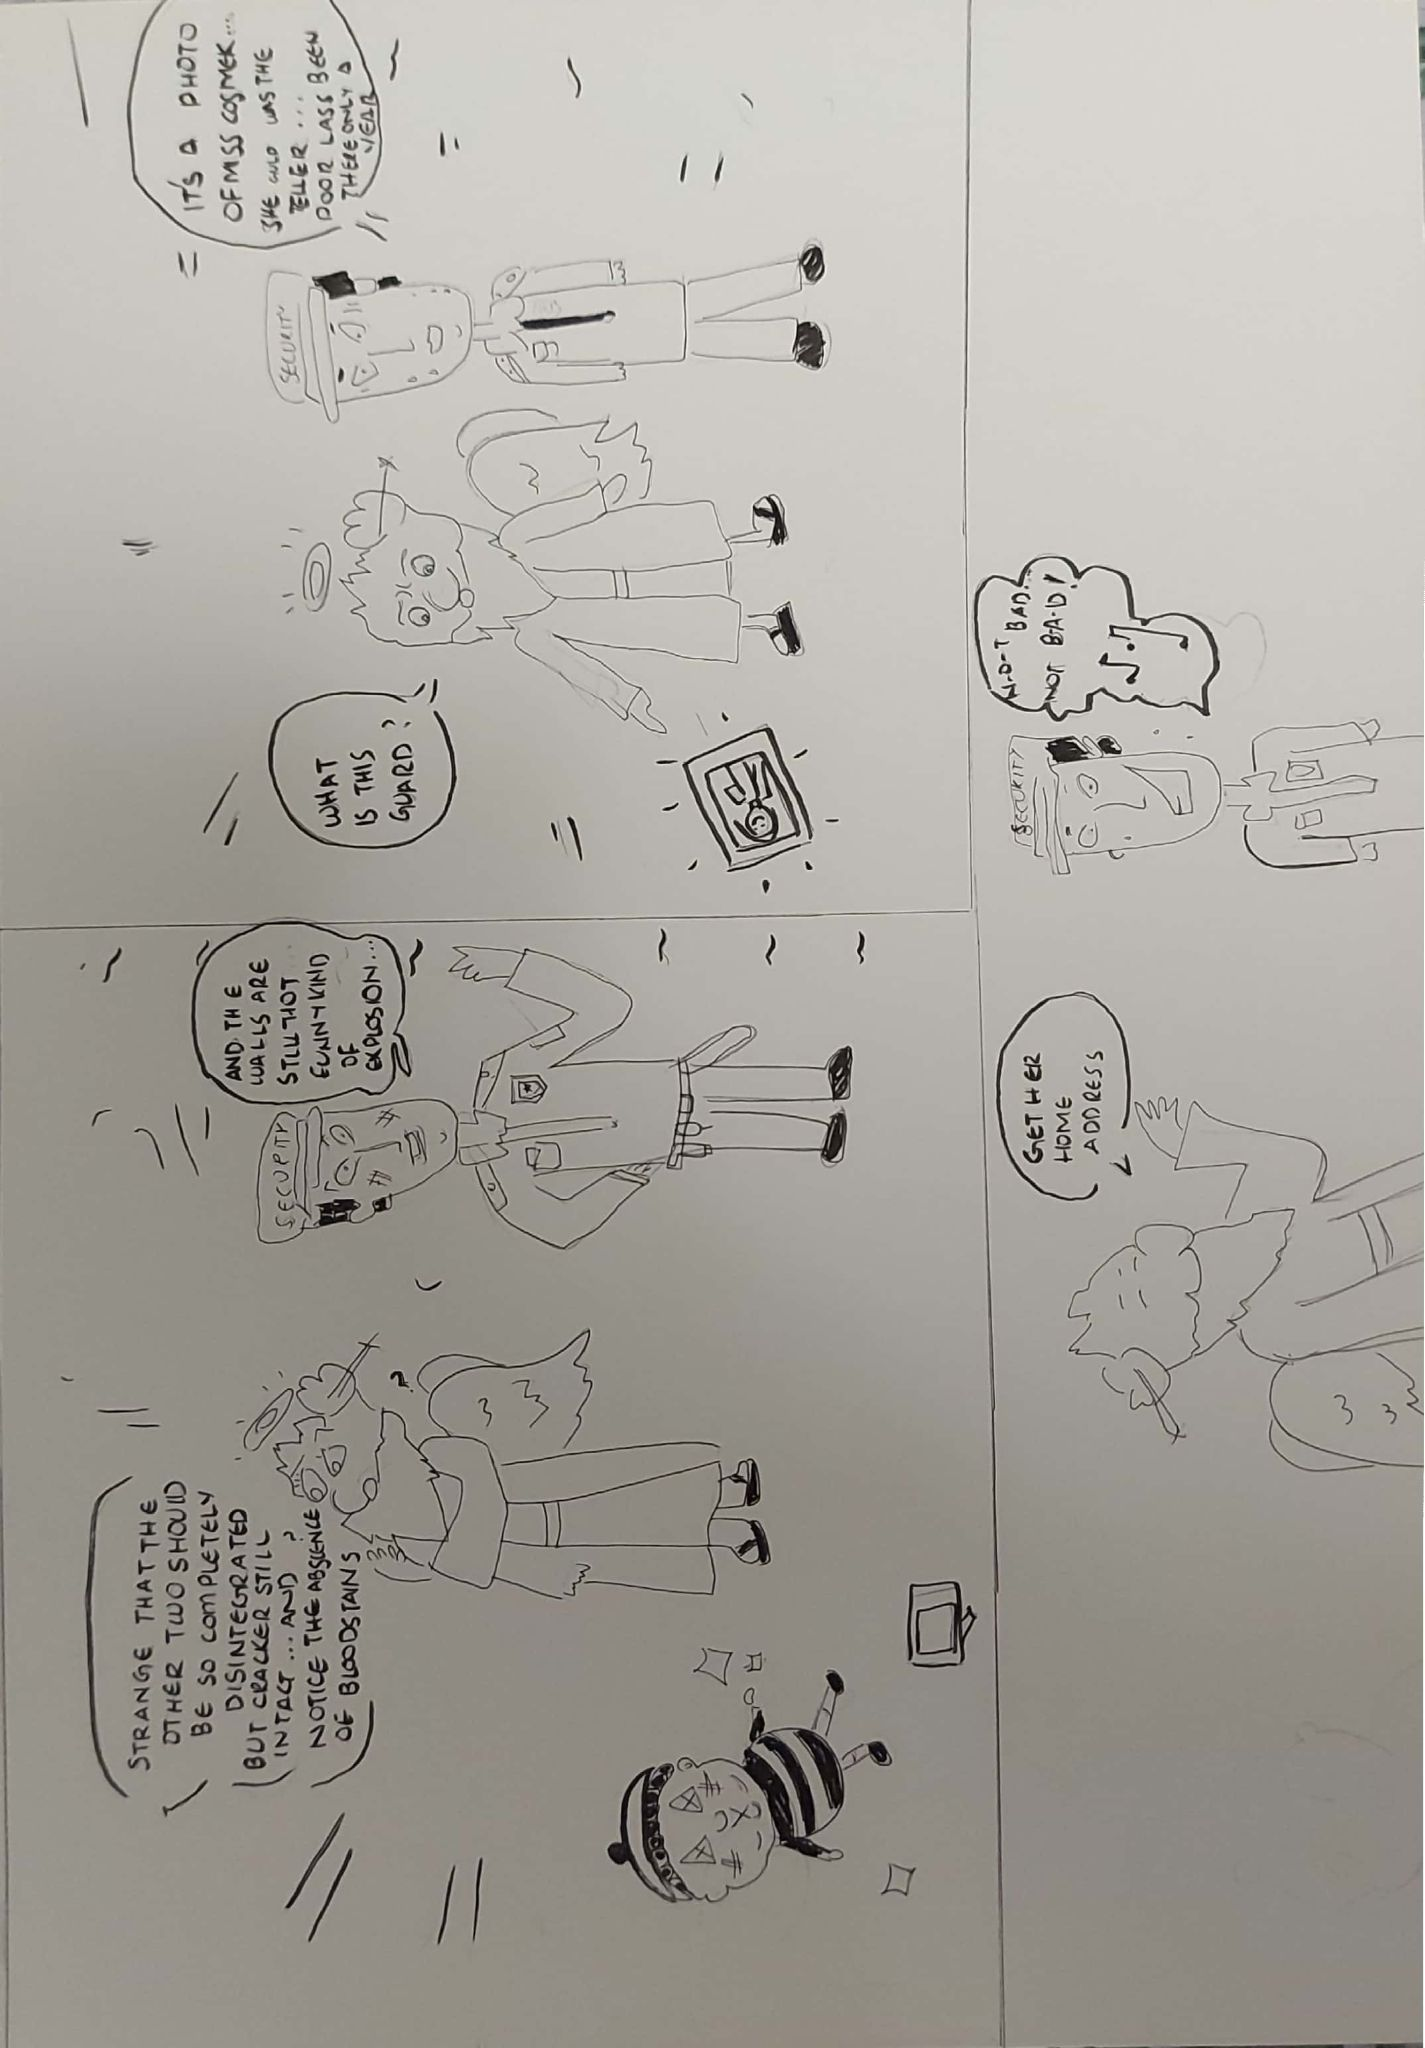 STRANGE THAT THE
OTHER TWO SHOULD
BE SO COMPLETELY
DISINTEGRATED
BUT CRACKER STILL
INTACT ... AND,
NOTICE THE ABSCENCE
OF BLOODSTAINS
?
AND THE
WALLS ARE
STILL HOT
FUNNY KIND
OF
EXPLOSION...
SECURITY
WHAT
IS THIS
GUARD?
IT'S A PHOTO
OF MISS COSMEK...
SHE WAS THE
TELLER...
POOR LASS BEEN
THERE ONLY A
YEAR
SECURITY
GET HER
HOME
ADDRESS
N-O-T BAD...
NOT B-A-D!
SECURITY